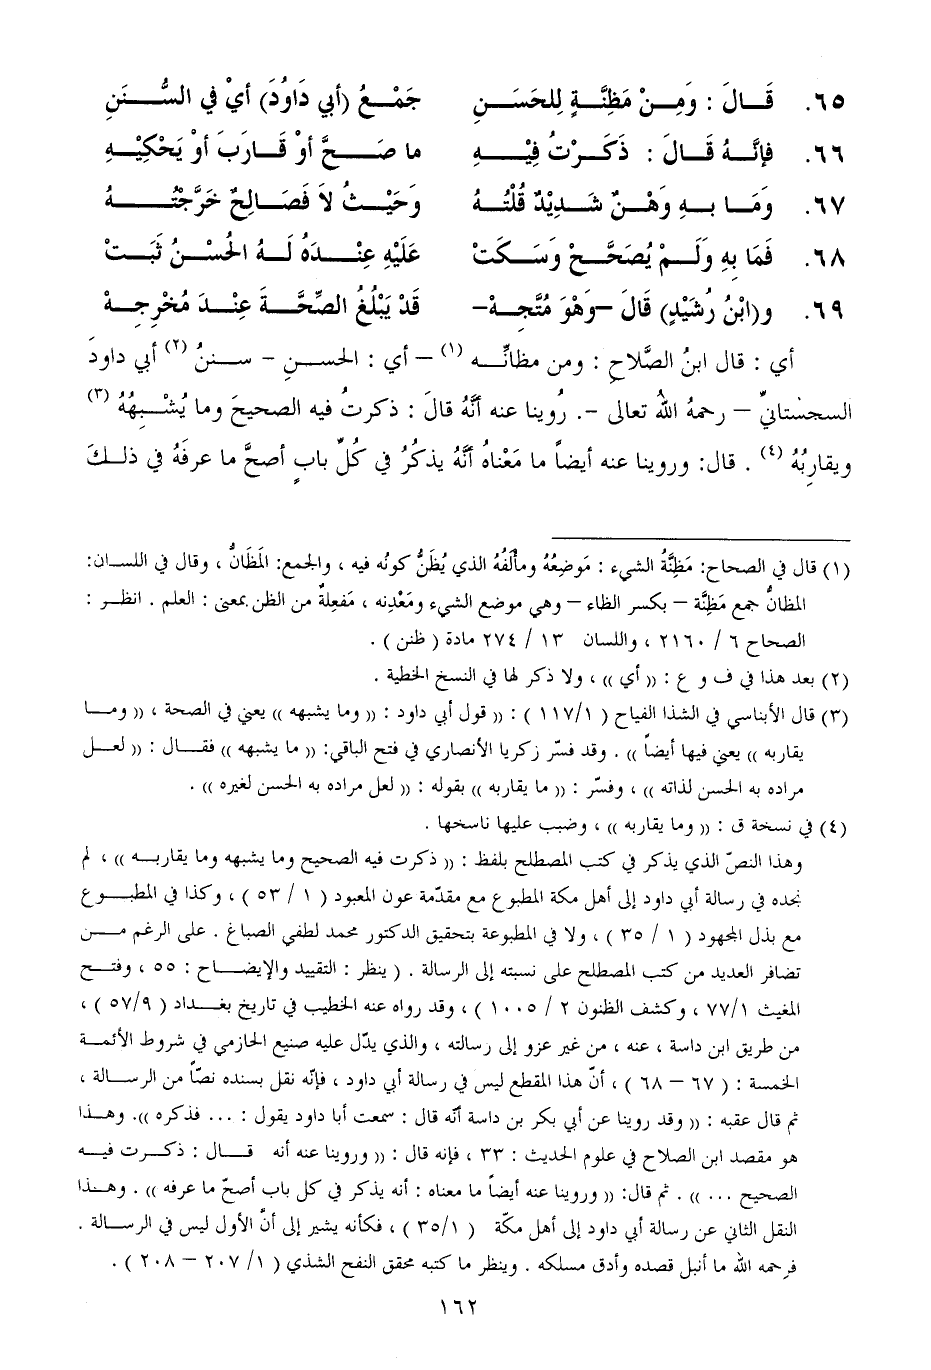 ٦٥. قَــالَ : وَمِنْ مَظِنَّــةٍ لِلحَسَــنِ جَمْــعُ (أبي دَاوُدَ) أيْ في السُّــنَنِ
٦٦. فإنَّــهُ قَــالَ : ذَكَــرْتُ فِيْــهِ ما صَــحَّ أوْ قَــارَبَ أو يَحْكِيْــهِ
٦٧. وَمَــا بــهِ وَهْــنٌ شَدِيْدٌ قُلْتُهُ وَحَيْــثُ لاَ فَصَــالِحٌ خَرَّجْتُــهُ
٦٨. فَمَا بِهِ وَلَــمْ يُصَحَّــحْ وَسَــكَتْ عَلَيْهِ عِنْــدَهُ لَــهُ الحُسْــنُ ثَبَــتْ
٦٩. و(ابْنُ رُشَيْدٍ) قَالَ –وَهْوَ مُتَّجِهْ– قَدْ يَبْلُغُ الصِّحَّــةَ عِنْــدَ مُخْرِجِــهْ
أي : قال ابنُ الصَّلاحِ : ومن مظانِّــه (١) – أي : الحســن – ســننُ (٢) أبي داودَ
السجستانيِّ – رحمهُ اللهُ تعالى –. رُوينا عنه أنَّهُ قالَ : ذكرتُ فيه الصحيحَ وما يُشْــبِهُهُ (٣)
ويقارِبُهُ (٤) . قال: وروينا عنه أيضاً ما مَعْناه أنَّهُ يذكُرُ في كُلِّ بابٍ أصحَّ ما عرفَهُ في ذلــكَ
(١) قال في الصحاح: مَظِنَّةُ الشيء : مَوضِعُهُ ومألَفُهُ الذي يُظَنُّ كونُه فيه ، والجمع: المَظَانُّ ، وقال في اللســان:
المظانُّ جمع مَظِنَّة – بكسر الظاء – وهي موضع الشيء ومَعْدِنه ، مَفعِلةٌ من الظن بمعنى : العلم . انظــر :
الصحاح ٦ / ٢١٦٠ ، واللسان ١٣ / ٢٧٤ مادة ( ظنن ) .
(٢) بعد هذا في ف و ع : (( أي )) ، ولا ذكر لها في النسخ الخطية .
(٣) قال الأبناسي في الشذا الفياح ( ١١٧/١ ) : (( قول أبي داود : (( وما يشبهه )) يعني في الصحة ، (( ومــا
يقاربه )) يعني فيها أيضاً )) . وقد فسّر زكريا الأنصاري في فتح الباقي: (( ما يشبهه )) فقــال : (( لعــل
مراده به الحسن لذاته )) ، وفسّر : (( ما يقاربه )) بقوله : (( لعل مراده به الحسن لغيره )) .
(٤) في نسخة ق : (( وما يقاربه )) ، وضبب عليها ناسخها .
وهذا النصّ الذي يذكر في كتب المصطلح بلفظ : (( ذكرت فيه الصحيح وما يشبهه وما يقاربــه )) ، لم
نجده في رسالة أبي داود إلى أهل مكة المطبوع مع مقدّمة عون المعبود ( ١ / ٥٣ ) ، وكذا في المطبــوع
مع بذل المجهود ( ١ / ٣٥ ) ، ولا في المطبوعة بتحقيق الدكتور محمد لطفي الصباغ . على الرغم مــن
تضافر العديد من كتب المصطلح على نسبته إلى الرسالة . ( ينظر : التقييد والإيضــاح : ٥٥ ، وفتــح
المغيث ٧٧/١ ، وكشف الظنون ٢ / ١٠٠٥ ) ، وقد رواه عنه الخطيب في تاريخ بغــداد ( ٥٧/٩ ) ،
من طريق ابن داسة ، عنه ، من غير عزو إلى رسالته ، والذي يدّل عليه صنيع الحازمي في شروط الأئمــة
الخمسة : ( ٦٧ – ٦٨ ) ، أنّ هذا المقطع ليس في رسالة أبي داود ، فإنّه نقل بسنده نصّاً من الرســالة ،
ثم قال عقبه : (( وقد روينا عن أبي بكر بن داسة أنّه قال : سمعت أبا داود يقول : ... فذكره )). وهــذا
هو مقصد ابن الصلاح في علوم الحديث : ٣٣ ، فإنه قال : (( وروينا عنه أنه قــال : ذكــرت فيــه
الصحيح ... )) . ثم قال: (( وروينا عنه أيضاً ما معناه : أنه يذكر في كل باب أصحّ ما عرفه )) . وهــذا
النقل الثاني عن رسالة أبي داود إلى أهل مكّة ( ٣٥/١ ) ، فكأنه يشير إلى أنَّ الأول ليس في الرســالة .
فرحمه الله ما أنبل قصده وأدق مسلكه . وينظر ما كتبه محقق النفح الشذي ( ١/ ٢٠٧ – ٢٠٨ ) .
١٦٢